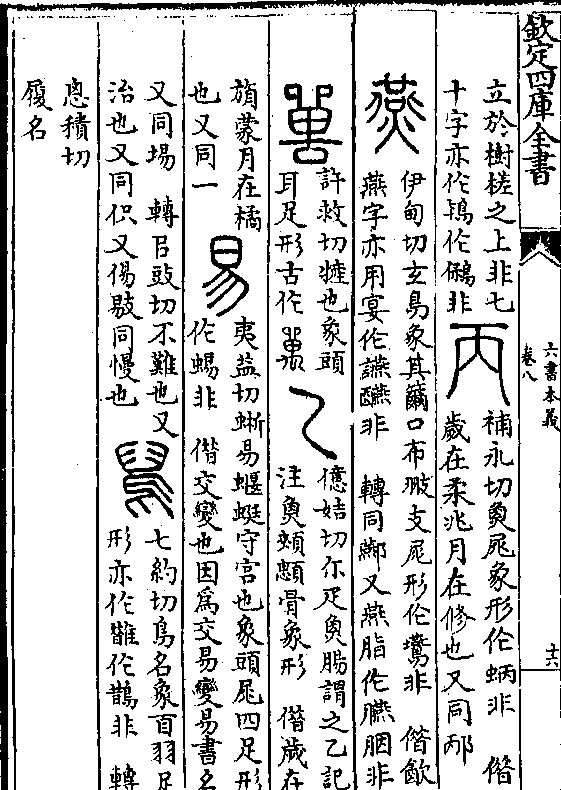 欽定四庫全書
六書本義
卷八
十六
立於樹槎之上非七
十字亦作鳷作鷉非
丙
補永切魚尾象形作蛃非 借
歲在柔兆月在修也又同邴
燕
伊甸切玄鳥象其籋口布翄支尾形作鷰非 借飲
燕字亦用宴作讌醼非 轉同酀又燕脂作臙胭非
嘼
許救切㹌也象頭
耳足形古作嘼
乙
億姞切尒疋魚腸謂之乙記
注魚頰顖骨象形 借歲在
旃蒙月在橘
也又同一
易
夷益切蜥易蝘蜓守宮也象頭尾四足形
作蜴非 借交變也因爲交易變易書名
又同埸 轉㠯豉切不難也又
治也又同伿又傷敡同慢也
舄
七約切鳥名象𦣻羽足
形亦作䧿作鵲非 轉
悤積切
履名